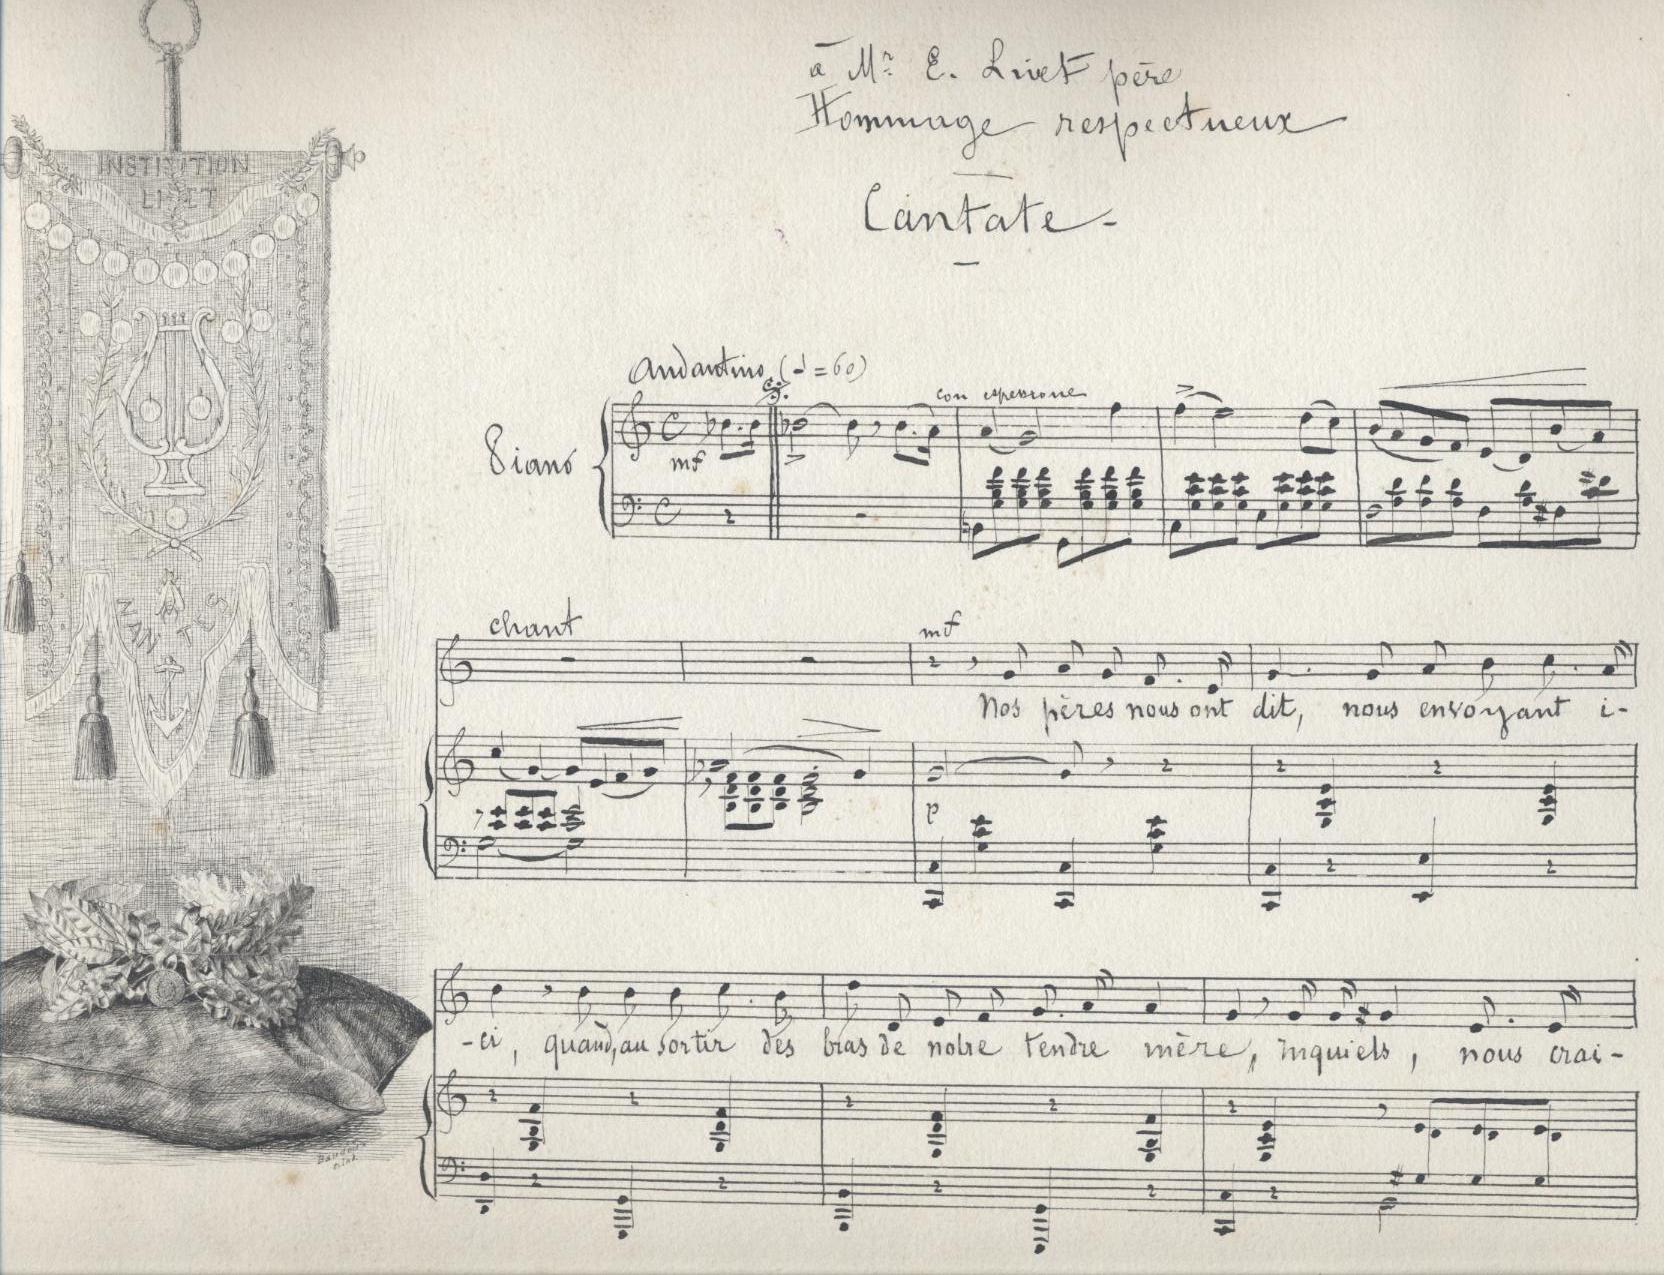 à Mr. E. Livet père
Hommage respectueux
Cantate -
INSTITUTION
LIVET
NANTES
Andantino (♩ = 60)
con espressione
Piano
mf
chant
mf
Nos pères nous ont dit, nous envoyant i-
p
-ci, quand, au sortir des bras de notre tendre mère, Inquiets, nous crai-